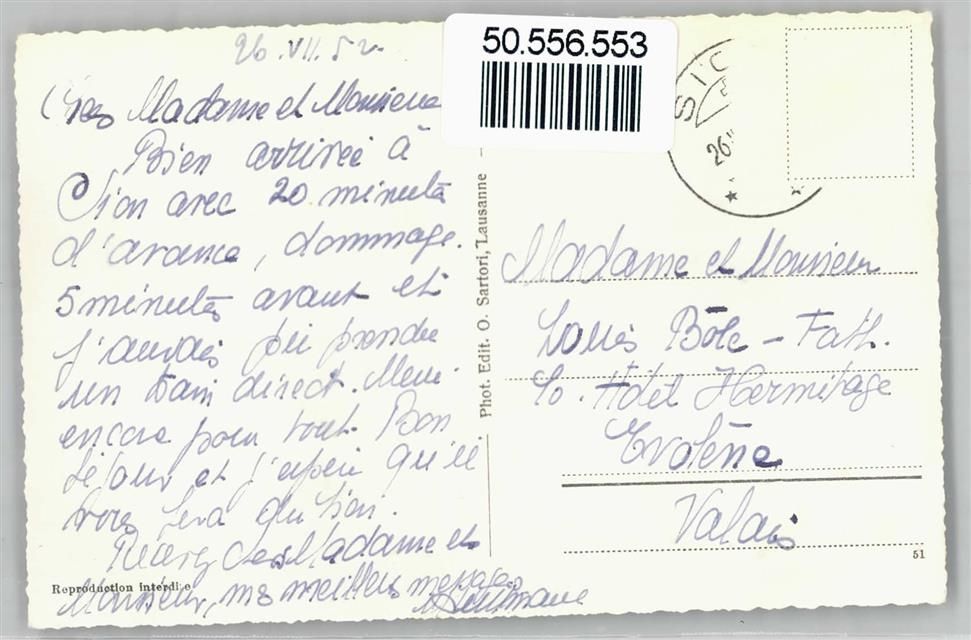 26.VII.52
Chers Madame et Monsieur
Bien arrivée à
Sion avec 20 minutes
d'avance, dommage.
5 minutes avant et
j'aurais pu prendre
un train direct. Merci
encore pour tout. Bon
séjour et j'espère qu'il
vous fera du bon.
Recevez chers Madame et
Monsieur, mes meilleurs messages
Reproduction interdite
Phot. Edit. O. Sartori, Lausanne
50.556.553
SIO
26
Madame et Monsieur
Louis Bôle - Fath.
c/o. Hôtel Hermitage
Evolène
Valais
51